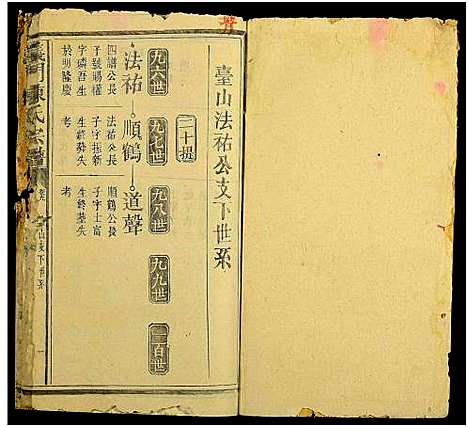 臺山法祐公支下世系
二十提
九六世
九七世
九八世
九九世
一百世
法祐
順鶴
道聲
四譜公長
子號賜權
字磷吾生
於明隆慶
法祐公長
子字振新
生終葬失
考
順鶴公長
子字士畜
生終墓失
考
義門陳氏宗譜
山支下世系